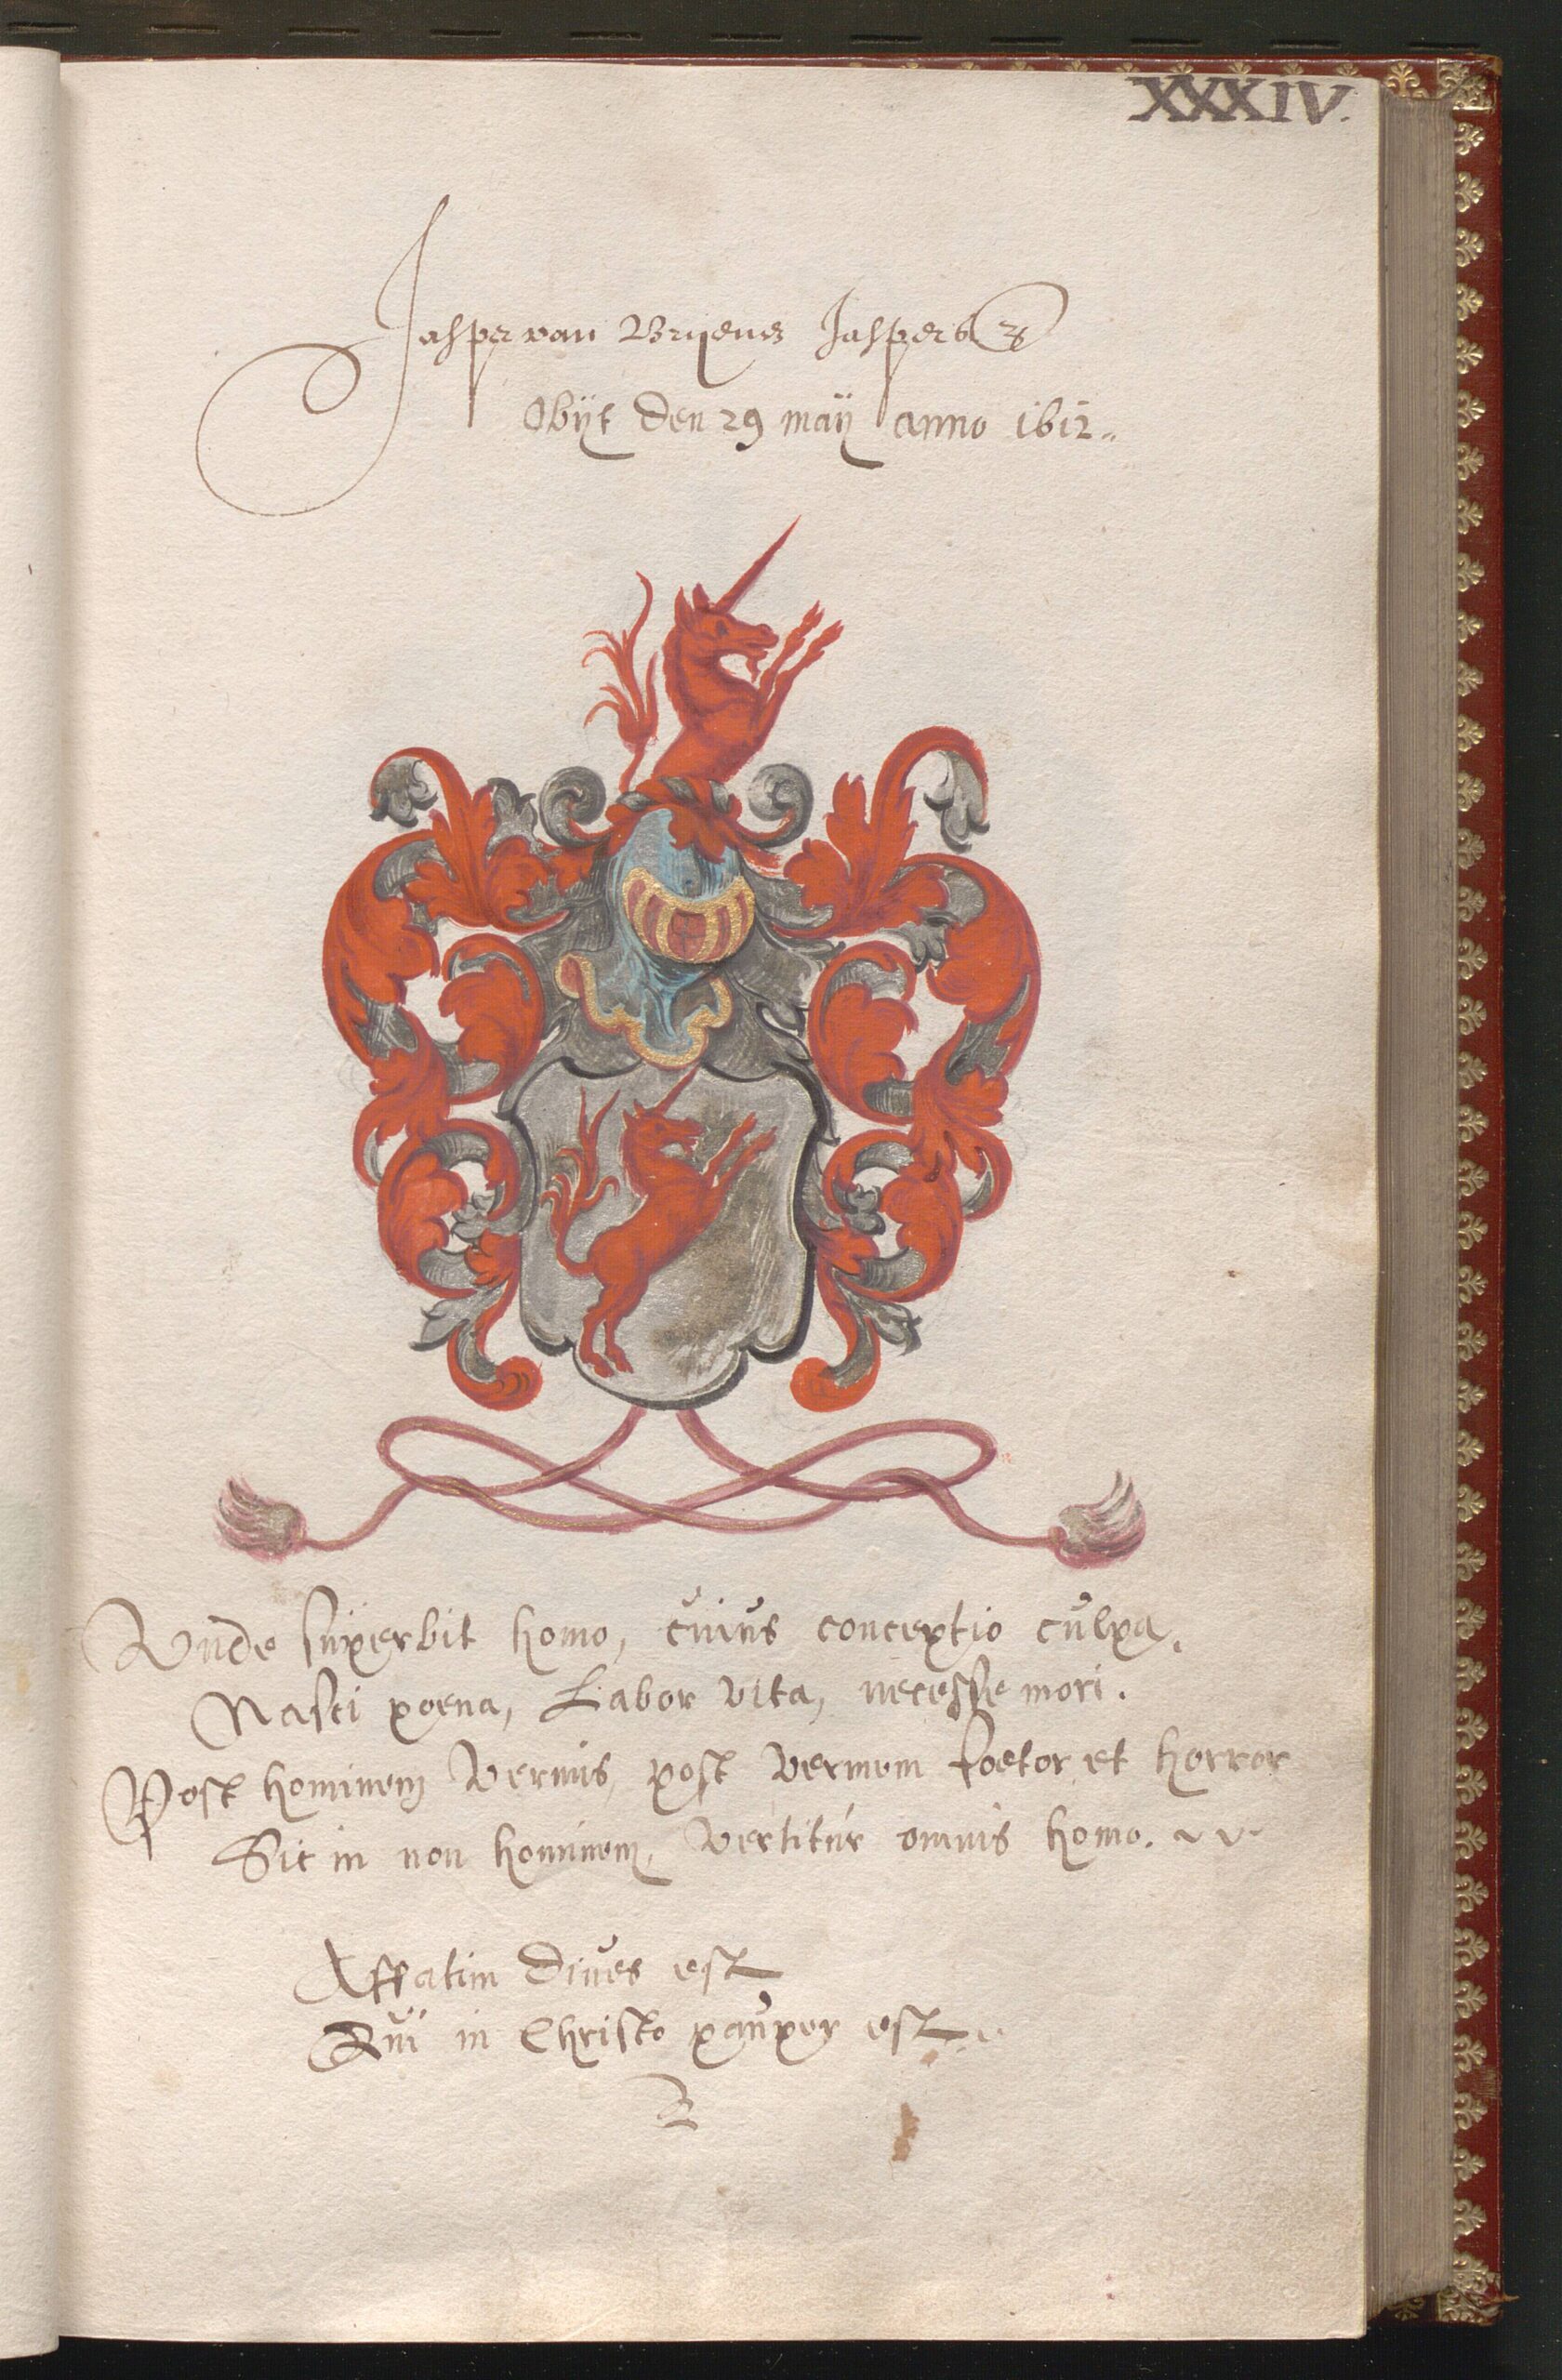 XXXIV.
Jasper van Bryenes Jaspersz
Obijt den 29 maij anno 1612..
Unde süperbit homo, cuius conceptio culpa,
Nasci poena, Labor vita, necesse mori.
Post hominem vermis, post vermem foetor et horror
Sic in non hominem, vertitur omnis homo.
Affatim Dives est
Qui in Christo pauper est..